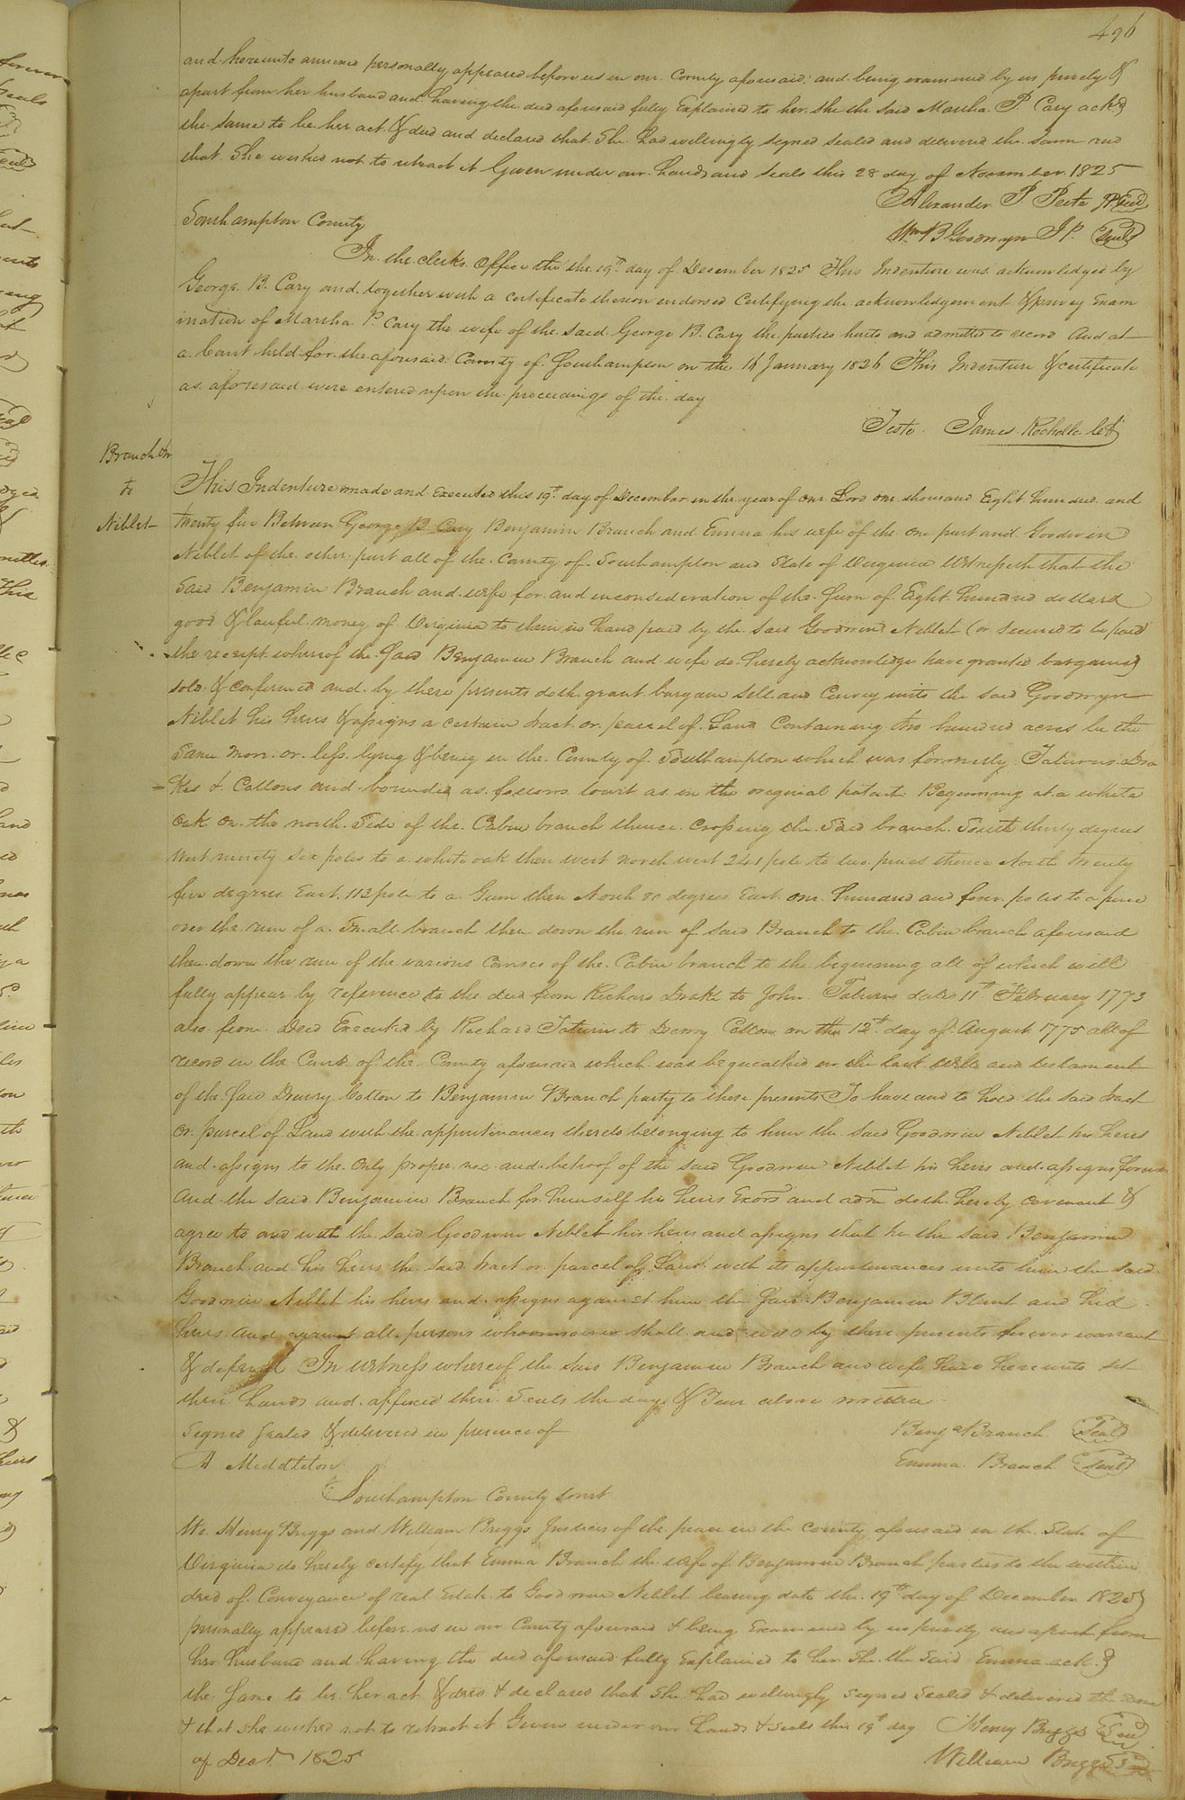 496
and hereunto annexed personally appeared before us in our County aforesaid and being examined by us privily &
apart from her husband and having the deed aforesaid fully Explained to her she the said Martha P Cary ackd
the same to be her act & deed and declared that She had willingly signed sealed and delivered the same and
that She wished not to retract it Given under our hands and seals this 28 day of November 1825
Alexander P Peete JP Seal
Wm B Goodwyn JP. Seal
Southampton County
In the clerks Office the the 19th day of December 1825 This Indenture was acknowledged by
George B. Cary and together with a certificate thereon endorsed Certifying the acknowledgement & privey Exam
ination of Martha P. Cary the wife of the said George B. Cary the parties hereto and admitted to record And at
a Court held for the aforesaid County of Southampton on the 16 January 1826 This Indenture & certificate
as aforesaid were entered upon the proceedings of the day
Teste James Rochelle
Branch &
to
Niblet
This Indenture made and Executed this 19th day of December in the year of our Lord one thousand Eight hundred and
twenty five Between George B Cary Benjamin Branch and Emma his wife of the one part and Goodwin
Niblet of the other part all of the County of Southampton and State of Virginia Witnesseth that the
Said Benjamin Branch and wife for and in consideration of the Sum of Eight hundred dollars
good & lawful money of Virginia to them in hand paid by the said Goodwin Niblet (or secured to be paid
the receipt whereof the Said Benjamin Branch and wife do hereby acknowledge have granted bargained
sold & conferred and by these presents doth grant bargain sell and Convey unto the said Goodwyn
Niblet his heirs & assigns a certain tract or parcel of Land Containing two hundred acres be the
Same more or less lying & being in the County of Southampton which was formerly Tatums Dra
kes & Cottons and bounded as follows towit as in the original patent Beginning at a white
oak on the north Side of the Cabin branch thence crossing the Said branch South thirty degrees
West ninety six poles to a white oak then west north west 241 pole to two pines thence North twenty
five degrees East 112 pole to a Gum then North 80 degrees East one hundred and four poles to a pine
over the run of a Small branch then down the run of said Branch to the Cabin branch aforesaid
then down the run of the various Courses of the Cabin branch to the beginning all of which will
fully appear by reference to the deed from Richard Drake to John Tatum dated 11th February 1773
also from Deed Executed by Richard Tatum to Drewry Cotton on the 12th day of August 1775 all of
record in the Court of the County aforesaid which was bequeathed in the last Will and testament
of the Said Drewry Cotton to Benjamin Branch party to these presents To have and to hold the said tract
or parcel of Land with the appurtenances thereto belonging to him the said Goodwin Niblet his heirs
and assigns to the Only proper use and behoof of the said Goodwin Niblet his heirs and assigns forever
And the said Benjamin Branch for himself his heirs Exors and adm doth hereby covenant &
agree to and with the said Goodwin Niblet his heirs and assigns that he the said Benjamin
Branch and his heirs the said tract or parcel of Land with its appurtenances unto him the said
Goodwin Niblet his heirs and assigns against him the Said Benjamin Blunt and his
heirs and against all persons whomsoever shall and will by these presents forever warrant
& defend In witness whereof the said Benjamin Branch and wife have hereunto set
their hands and affixed their Seals the day & Year above written
Signed Sealed & delivered in presence of
Benj Branch Seal
A Middleton
Emma Branch Seal
Southampton County
We Henry Briggs and William Briggs Justices of the peace in the County aforesaid in the State of
Virginia do hereby certify that Emma Branch the wife of Benjamin Branch parties to the within
deed of Conveyance of real Estate to Goodwin Niblet bearing date the 19th day of December 1825
personally appeared before us in our County aforesaid & being Examined by us privily and apart from
her husband and having the deed aforesaid fully Explained to her She the said Emma ackd
the Same to be her act & deed & declared that She had willingly signed sealed & delivered the same
& that she wished not to retract it Given under our hands & seals this 19th day
of Decr 1825
Henry Briggs Seal
William Briggs Seal